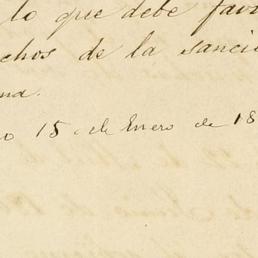 lo que debe fav
chos de la sanci
na.
o 15 de Enero de 18